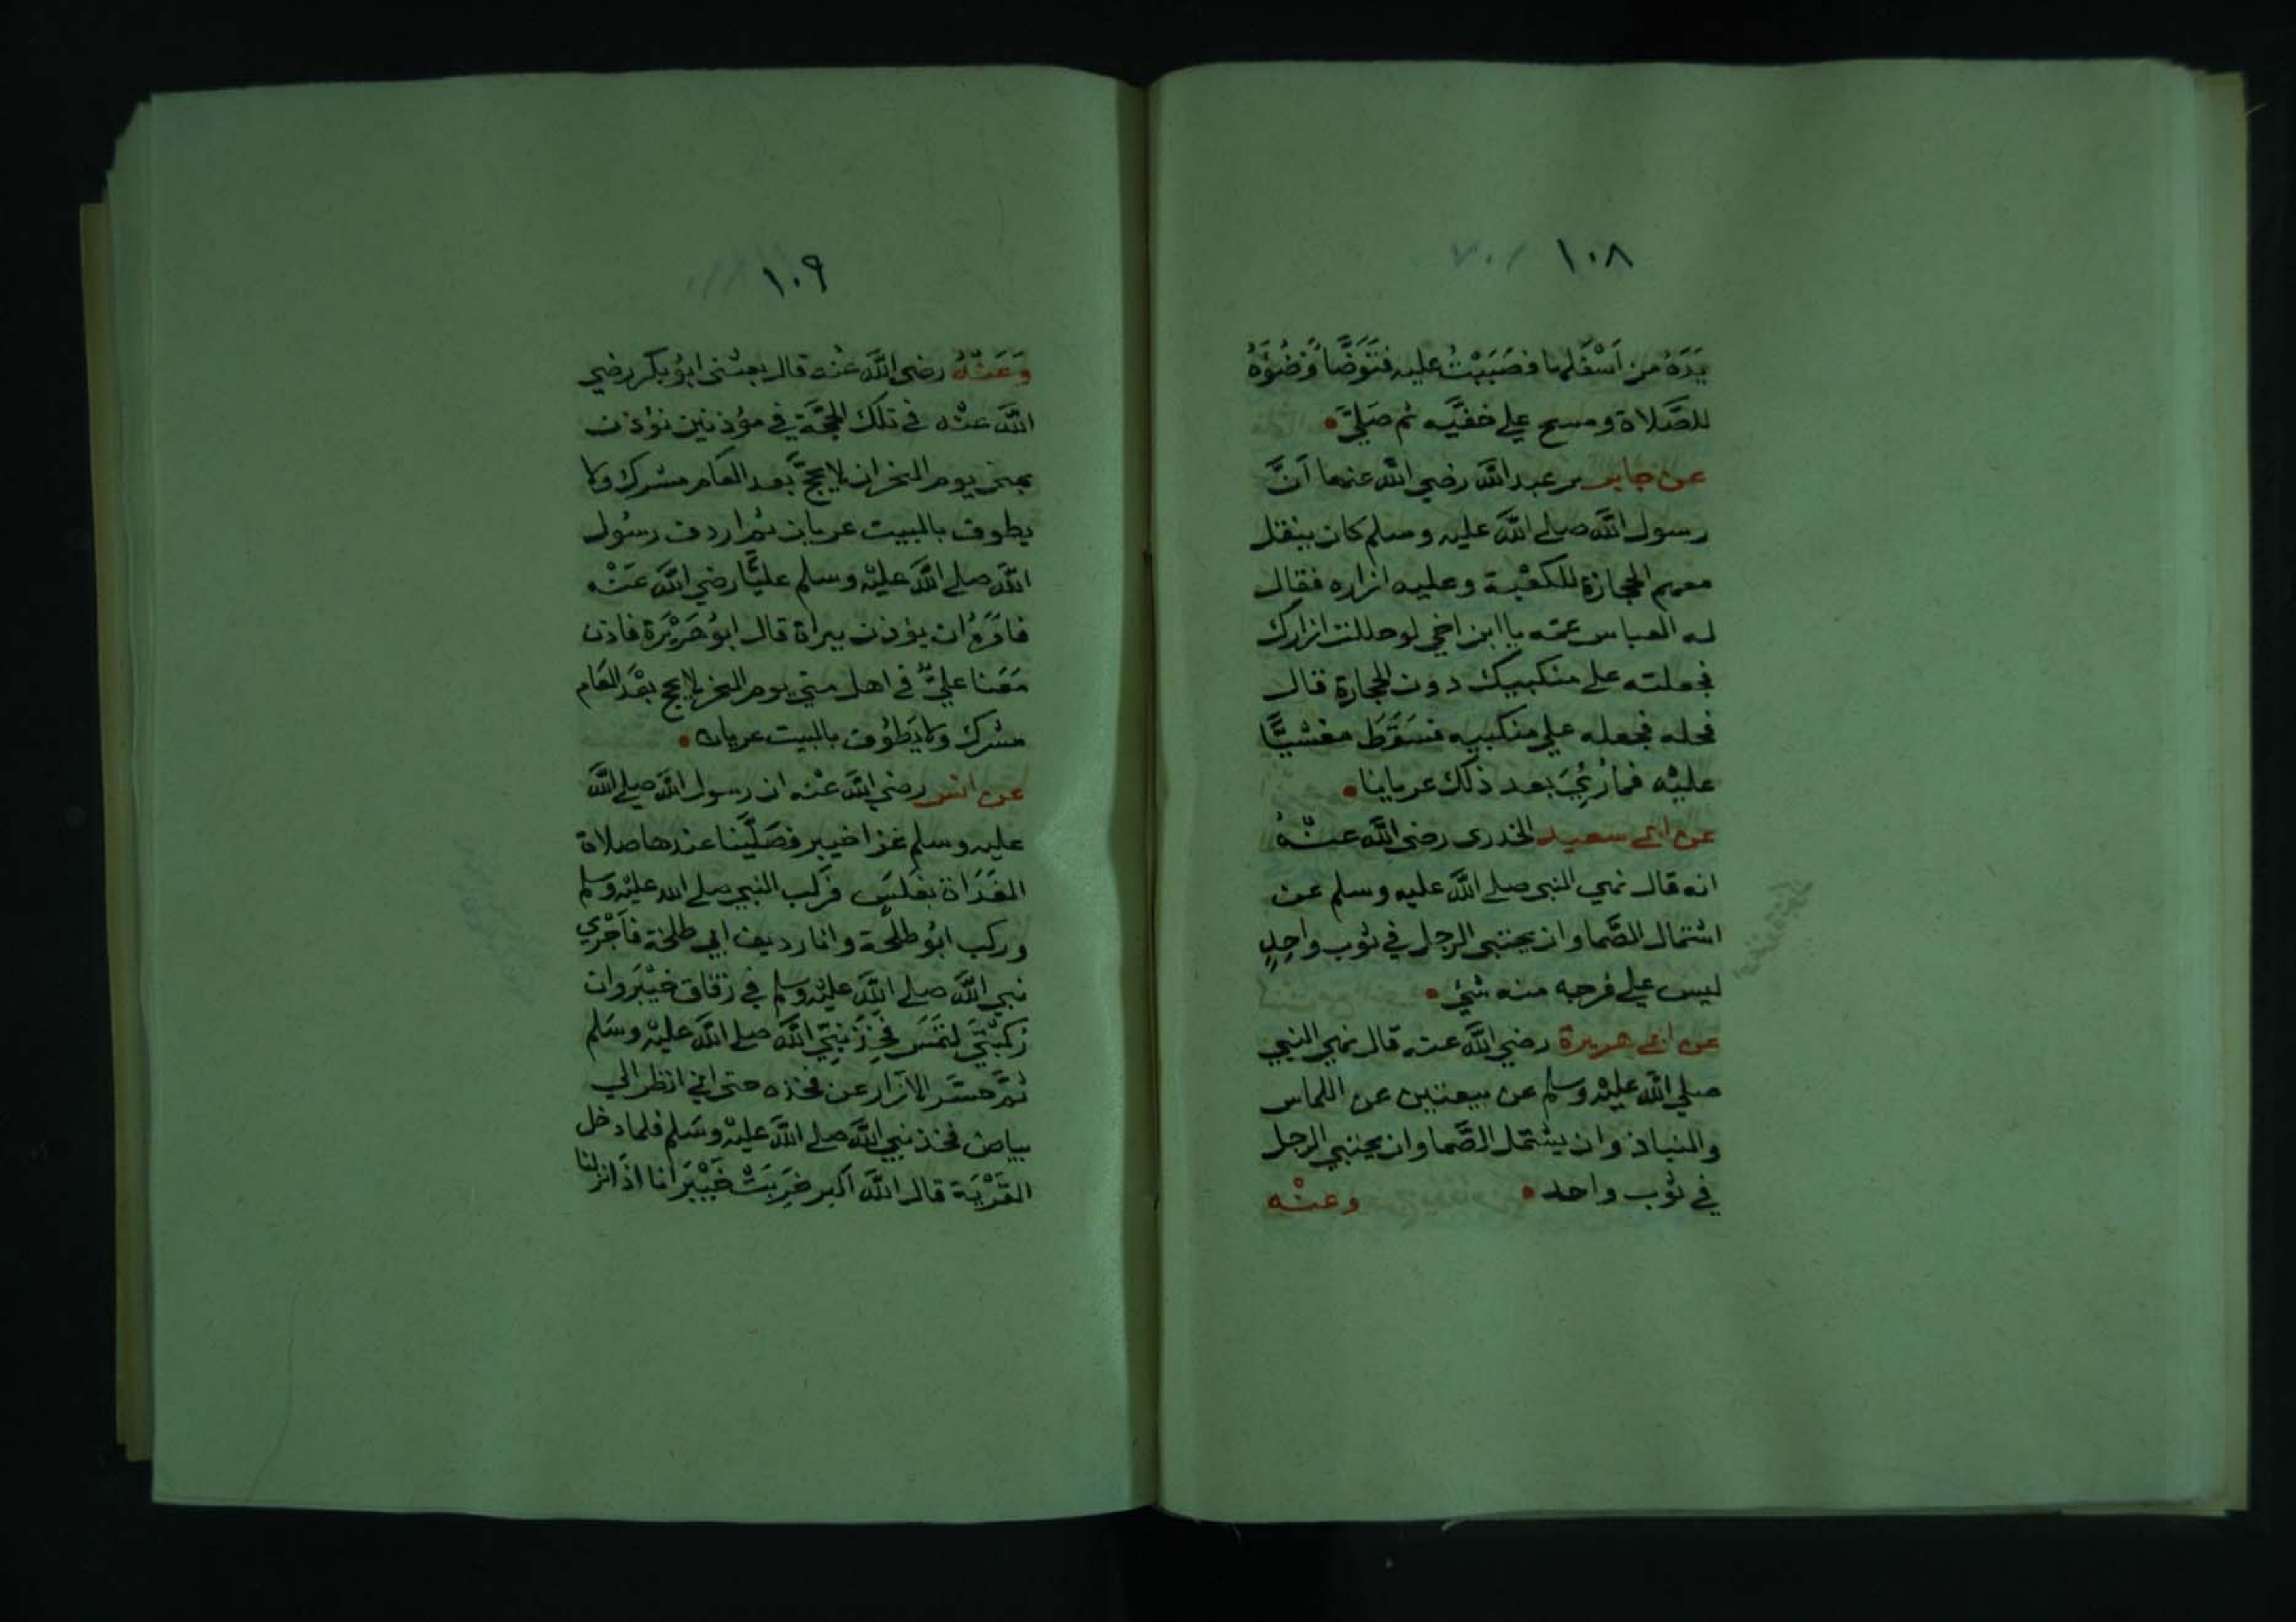 ١٠٨
يَدَهُ من اَسْفَلها فصَبَبْتُ عليه فتَوَضَّأ وُضُوْءَهُ
للصَّلاة ومسح علي خفيَّه ثم صَلَّي
عن جابر بن عبد الله رضي الله عنهما اَنَّ
رسول الله صلى الله عليه وسلم كان ينقل
معهم الحجارة للكعْبة وعليه ازاره فقال
له العباس عمه يا ابن اخي لو حللت ازارك
فجعلته على منكبيك دون الحجارة قال
فحله فجعله علي منكبيه فسَقَطَ مغشيًّا
عليْه فما رُئِيَ بعد ذلك عريانا
عن ابي سعيد الخدري رضي الله عنْهُ
انه قال نهي النبي صلى الله عليه وسلم عن
اشتمال الصَّما وان يحتبي الرجل في ثوب واحِدٍ
ليس علي فرجه منه شئ
عن ابي هريرة رضي الله عنه قال نهي النبي
صلي الله عليْه وسلم عن بيعتين عن اللماس
والنباذ وان يشتمل الصَّما وان يحتبي الرجل
في ثوب واحد
وعنْه
١٠٩
وَعَنْهُ رضي الله عنه قال بعثني ابوُ بكر رضي
الله عنْه في تلك الحَجَّة في مؤذنين نؤذن
بمنى يوم النحر ان لا يحجَّ بعد العام مشرك ولا
يطوف بالبيت عريان ثم اردف رسُول
الله صلى الله عليْه وسلم عليًّا رضي الله عَنْه
فامَرَهُ ان يؤذن ببراة قال ابوُ هُرَيْرَة فاذن
مَعَنا عليٌّ في اهل مني يوم النحر لا يحج بعْدَ العَام
مشرك ولا يَطوُف بالبيت عريان
عن انس رضي الله عنْه ان رسول الله صلى الله
عليه وسلم غزا خيبر فصَلَّينا عندها صلاة
الغَدَاة بغَلَسٍ فرَكب النبي صلى الله عليْه وسلم
وركب ابوُ طلْحَة وانا رديف ابي طلحة فاَجْرَي
نبي الله صلى الله عليْه وسلم في زقاق خيْبَر وان
رُكبَتي لتمَسَ فَخِذَ نبيّ الله صلى الله عليْه وسَلم
ثمَّ حسَر الازار عن فخذه حتى اني انظر الي
بياض فخذ نبي الله صلى الله عليْه وسَلم فلما دخل
القَرْيَة قال الله اَكبر خَرِبَتْ خَيْبَر انا اذا نزلنا